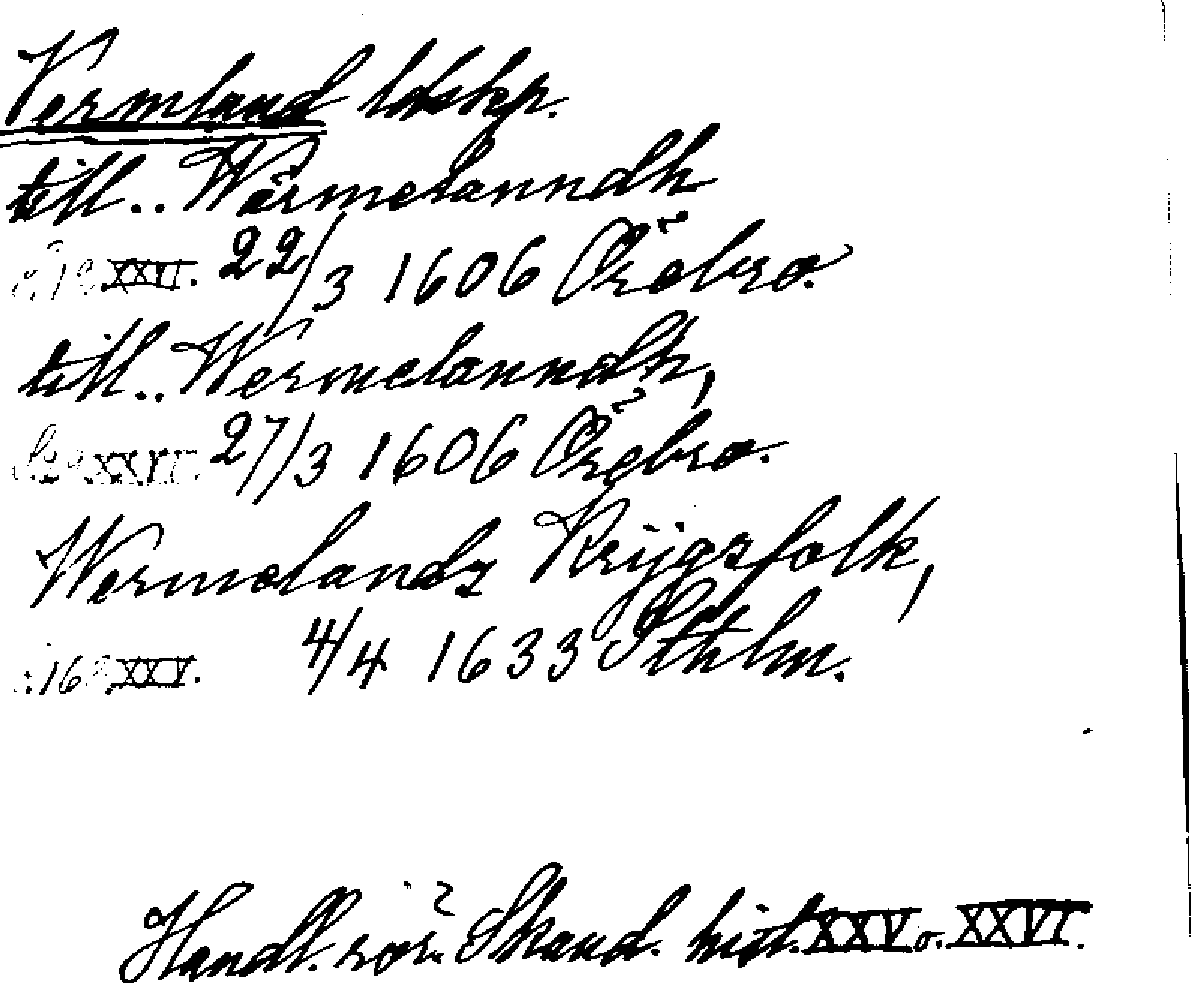 Vermland ldskp.
till.. Wärmelanndh
XXVI. 22/3 1606 Örebro.
till.. Wermelanndh,
XXVI. 27/3 1606 Örebro.
Wermelandz Krijgzfolk,
XXV. 4/4 1633 Sthlm.
Handl. rör. Skand. hist. XXV o. XXVI.